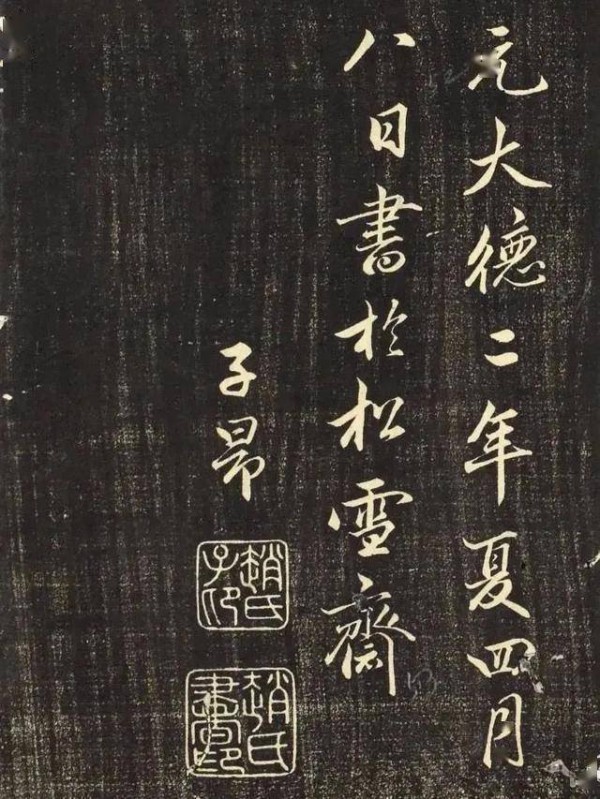 元大德二年夏四月
八日書於松雪齋
子昂
趙氏子昂
趙氏書印